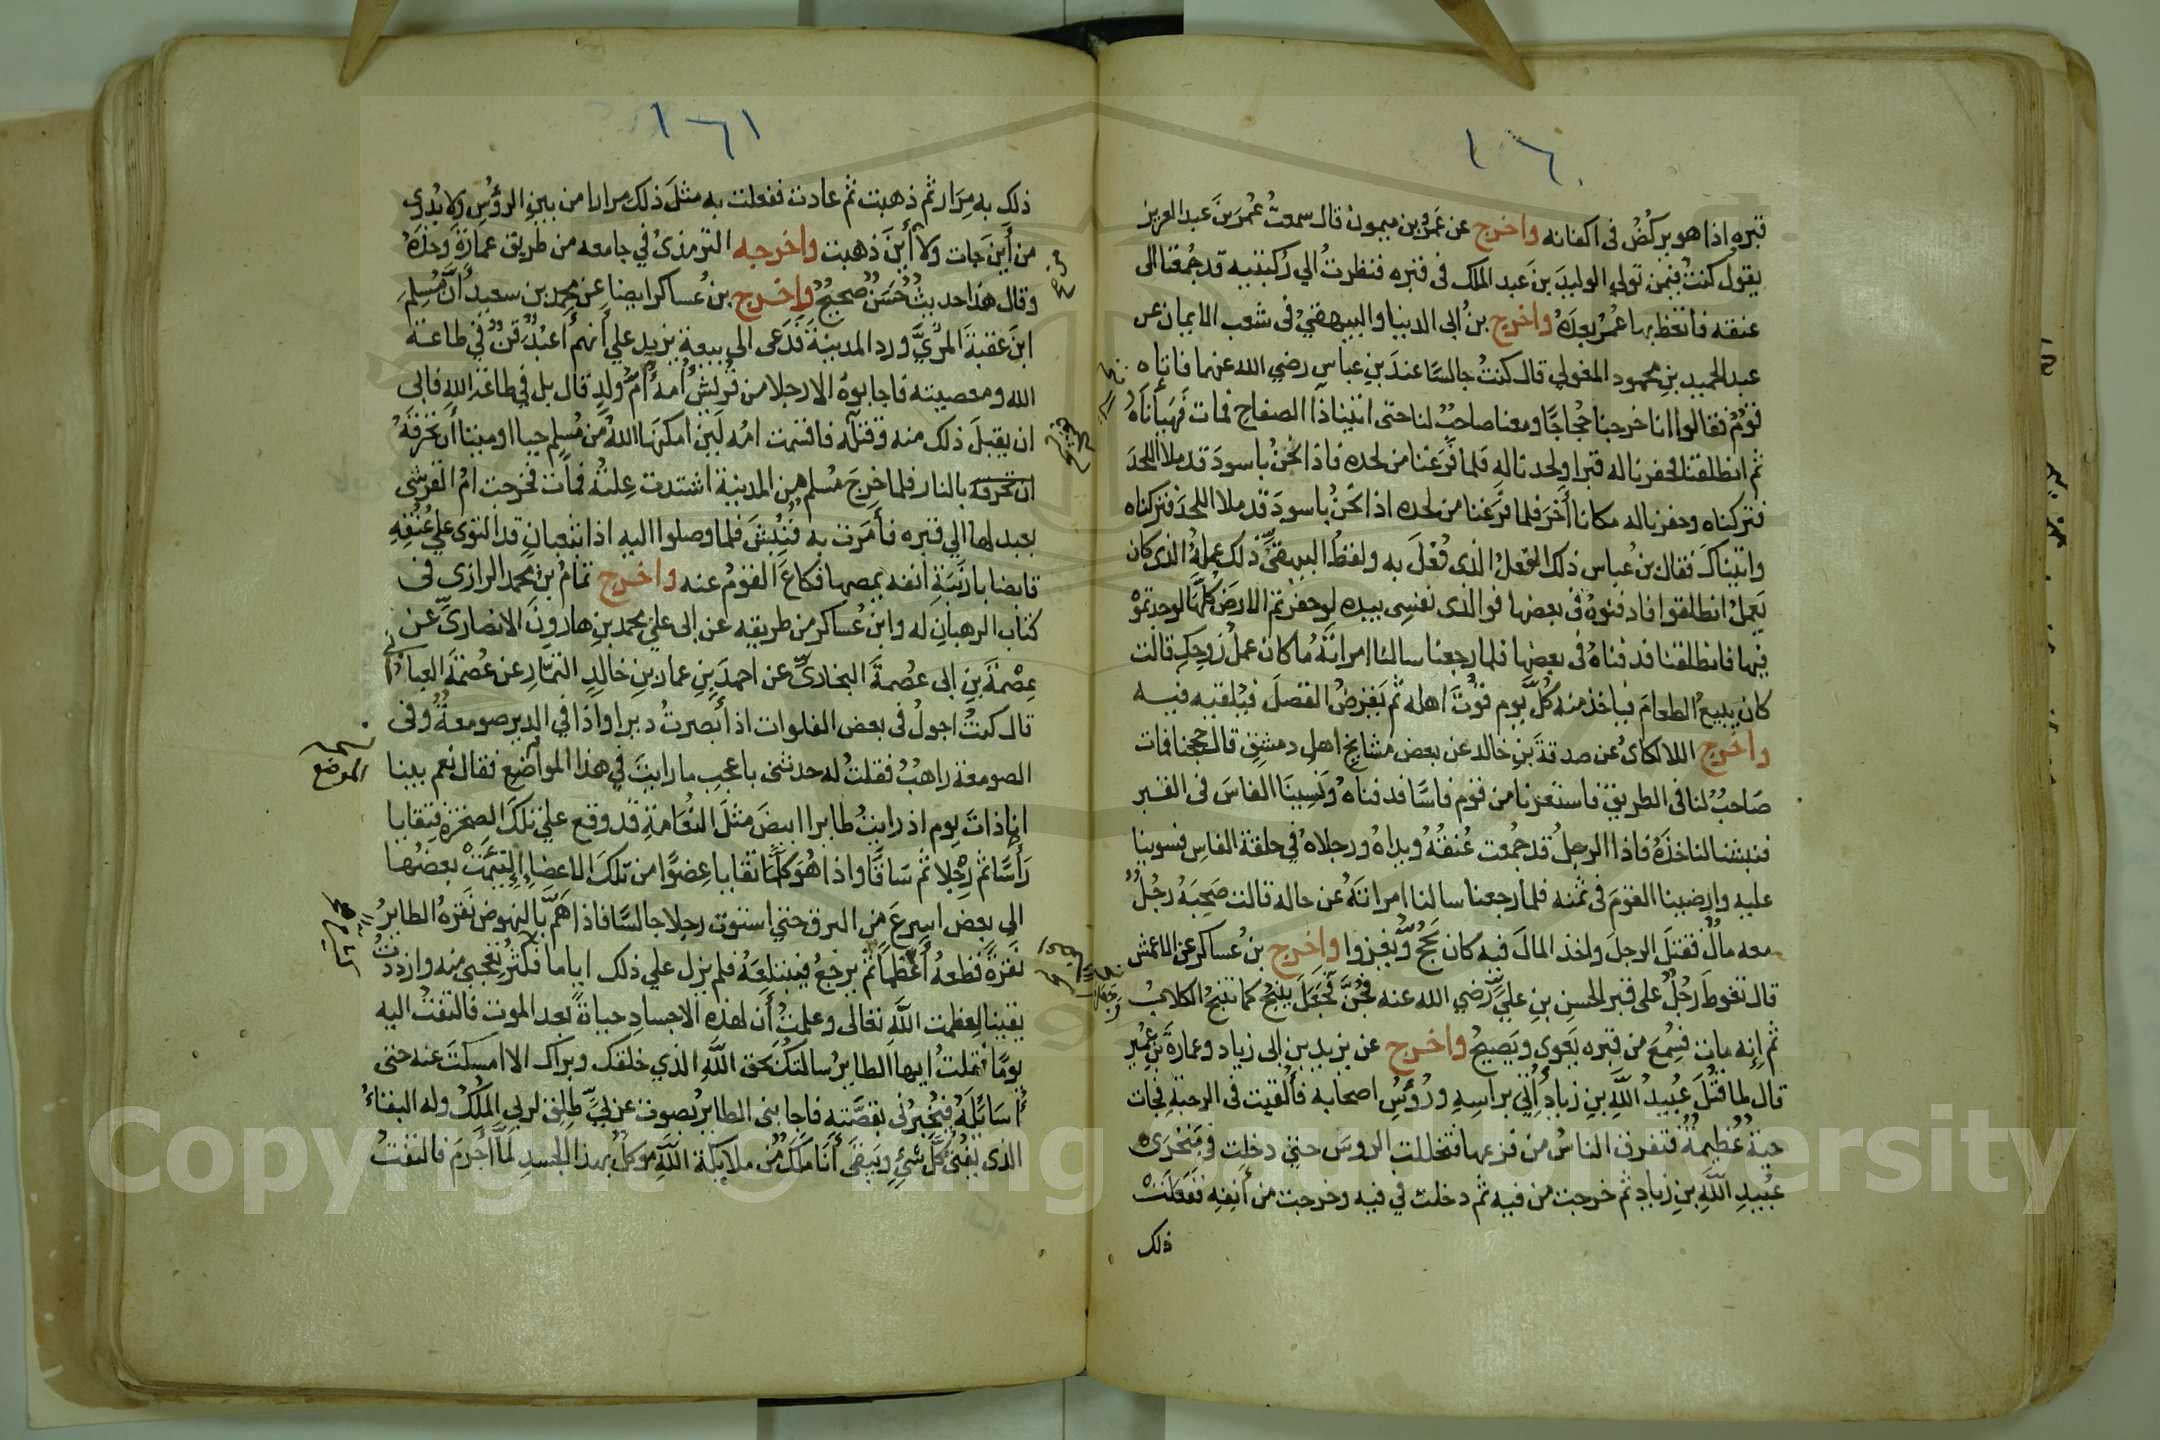 ١٦٠
قبره اذا هو يركض فى اكفانه واخرج عن عَمرو بن ميمون قال سمعتُ عُمرَ بنَ عبد العزيز
يقول كنتُ فيمن تولي الوليدَ بنَ عبد الملك فى قبره فنظرتُ الي رُكبتيه قد جمعتا الى
عنقه فاتعظ بها عُمر بعدَهُ واخرج بنُ ابى الدنيا والبيهقيْ فى شعب الايمان عن
عبد الحميد بنِ محمود المغولي قال كنتُ جالسًا عندَ بنِ عباسٍ رضي الله عنهما فاتاه
قومٌ فقالوا انا خرجنا حُجاجًا ومعنا صاحبٌ لنا حتى اتينا ذا الصفاح فمات فَهيأناهُ
ثم انطلقنا فحفرنا له قبرا ولحدنا له فلما فَرَغنا من لحده فاذا نحنُ باسودَ قد ملأ اللحدَ
فتركناه وحفرنا له مكانا أخَر فلما فَرَغنا من لحده اذا نحْنُ باسودَ قد ملا اللحدَ فتركناه
واتيناكَ فقال بن عباس ذلك الفعلُ الذى فُعْلَ به ولفظُ البيهقيِّ ذلك عملهُ الذى كان
يَعملُ انطلقوا فادفنوهُ فى بعضها فوالذى نفسِى بيده لو حفرتم الارضَ كُلَّها لوجدتموْ
فيها فانطلقنا فدفناهُ فى بعضِها فلما رجعنا سالنا امراتَهُ ما كان عملُ زوجِكِ قالت
كان يبيعُ الطعامَ فياخذ منه كُلَّ يوم قوتَ اهله ثم يَقرضُ القصلَ فيُلقيه فيه
واخرج اللالكاى عن صدقةَ بنِ خالد عن بعض مشايخِ اهلِ دمشقِ قال حججنا فمات
صَاحبٌ لنا فى الطريقِ فاستعرنا من قوم فاسًا فدفناهُ ونَسِينَا الفاسَ فى القبر
فنبشنا لناخذهُ فاذا الرجلُ قد جُمعت عُنقُهُ ويداهُ ورجلاهُ فى حلقة الفاسِ فسوينا
عليه وارضينا القومَ فى ثمنه فلما رجعنا سالنا امراتَهُ عن حاله قالت صَحِبَهُ رجُلٌ
معه مالٌ فقتلَ الرجلَ واخذ المالَ فيه كان يَحُجُّ ويَغزوا واخرج بنُ عساكر عن الاعمش
قال تغوطَ رَجُلٌ على قبر الحسنِ بنِ عليٍّ رَضي الله عنه فجُنَّ فجَعَلَ ينبحُ كما تنبحُ الكلابُ
ثم إنه ماتَ فسُمِعَ من قبره يَعوى ويَصيحُ واخرج عن يزيد بن ابى زياد وعمارةَ بنِ عُميرٍ
قال لما قُتلَ عُبيدُ اللَّهِ بنِ زيادٍ أُتيَ براسِهِ ورُؤسِ اصحابه فألقيت فى الرحبةِ فجات
حيةٌ عُظيمةٌ فتفرق الناسُ من فزعها فتخللت الروسَ حتي دخلت في مَنخرَى
عُبيدِ اللَّهِ بنِ زيادٍ ثم خرجت من فيه ثم دخلت في فيه وخرجت من أَنفِهِ فَفَعَلَتْ
ذلك
١٦١
ذلك به مِرَار ثم ذهبت ثم عادت ففعلت به مثلَ ذلك مرارا من بين الرؤُسِ ولا يُدرى
من أَينَ جات ولا أَينَ ذهبت واخرجه الترمذىُ في جامعه من طريق عمارَةَ وحدَهُ
وقال هذا حديثٌ حُسَنٌ صحيحٌ واخرج بن عُساكر ايضا عن محمد بن سعيد أنَّ مُسلِمَ
ابنَ عُقبةَ المُريَّ ورد المدينةَ فدَعى الى بيعة يزيدٍ علي أنهم أَعبُدٌ قنٌ في طاعة
الله ومعصيته فاجابوهُ الا رجلا من قُريشٍ امهُ أمُّ ولدٍ قال بل في طاعة الله فابى
ان يقبلَ ذلك منه وقتله فاقسمت امُه لَئِن امكنَها اللهُ مِن مُسلمٍ حيا او ميتا أن تحرقَهُ
ان تحرقه بالنار فلما خرجَ مُسلم من المدينة اشتدت عِلتُهُ فمات فخرجت امُ القرشي
بعبدٍ لها الي قبره فأمَرَت به فنُبشَ فلما وصلوا اليه اذا بثعبانٍ قد التوى علي عُنُقِهِ
قابضا بارنَبَةِ انفه يمصها فكاعَ القومُ عنه واخرج تمامُ بنُ محمد الرازي فى
كتاب الرهبانِ له وابنُ عُساكر من طريقه عن ابى علي محمد بنِ هارونَ الانصاريِّ عن
عِصْمةَ بنِ ابى عصْمةَ البخاريِّ عن احمدَ بنِ عمار بنِ خالدٍ التمارِ عن عُصمةَ العبادُانى
قال كنتُ اجولُ فى بعض الفلوات اذ أَبصرتُ ديرا واذا في الدير صومعةٌ وفى
الصومعة راهبٌ فقلتُ له حدثنى باعجبِ ما رايتَ في هذا المواضع فقال نعم بينا
الموضع
انا ذاتَ يوم اذ رايتُ طايرا ابيضَ مثلَ النعامةِ قد وقع علي تلكَ الصخرَةِ فتقايا
رَأْسًا ثم رِجْلا ثم سَاقًا واذا هُوَ كُلما تقايا عِضوًا من تلكَ الاعضاءِ التِئمَتْ بعضُها
الى بعض اسرعَ من البرق حتي استوت رجلا جالسًا فاذا هَمَّ بالنهوضِ نَقرَهُ الطايرُ
نَقرَةً قطعهُ أَعْظمًا ثم يرجعُ فيبتلعَهُ فلم يزل علي ذلك اياما فكَثُر تعجبي منه وازددتُ
يقينا لِعظمت اللَّهِ تعالى وعلمتُ أَن لهذه الاجسادِ حياةً بعد الموتِ فالتفتُ اليه
يومًا فقلتُ ايها الطايرُ سالتكَ بحق اللَّهِ الذي خلقك وبراك الا امسكتَ عنه حتى
أُسَائلَهُ فيُخبرُنى بقصَّته فاجابنى الطايرُ بصوت عربيٍّ طلِقٍ لربي المُلكُ وله البقاءُ
الذى يُفنى كُلَّ شئٍ ويَبقَى أَنا مَلَكٌ من ملايكة اللَّهِ موكلٌ بهذا الجسدِ لمَّا أَجْرَمَ فالتفتُ